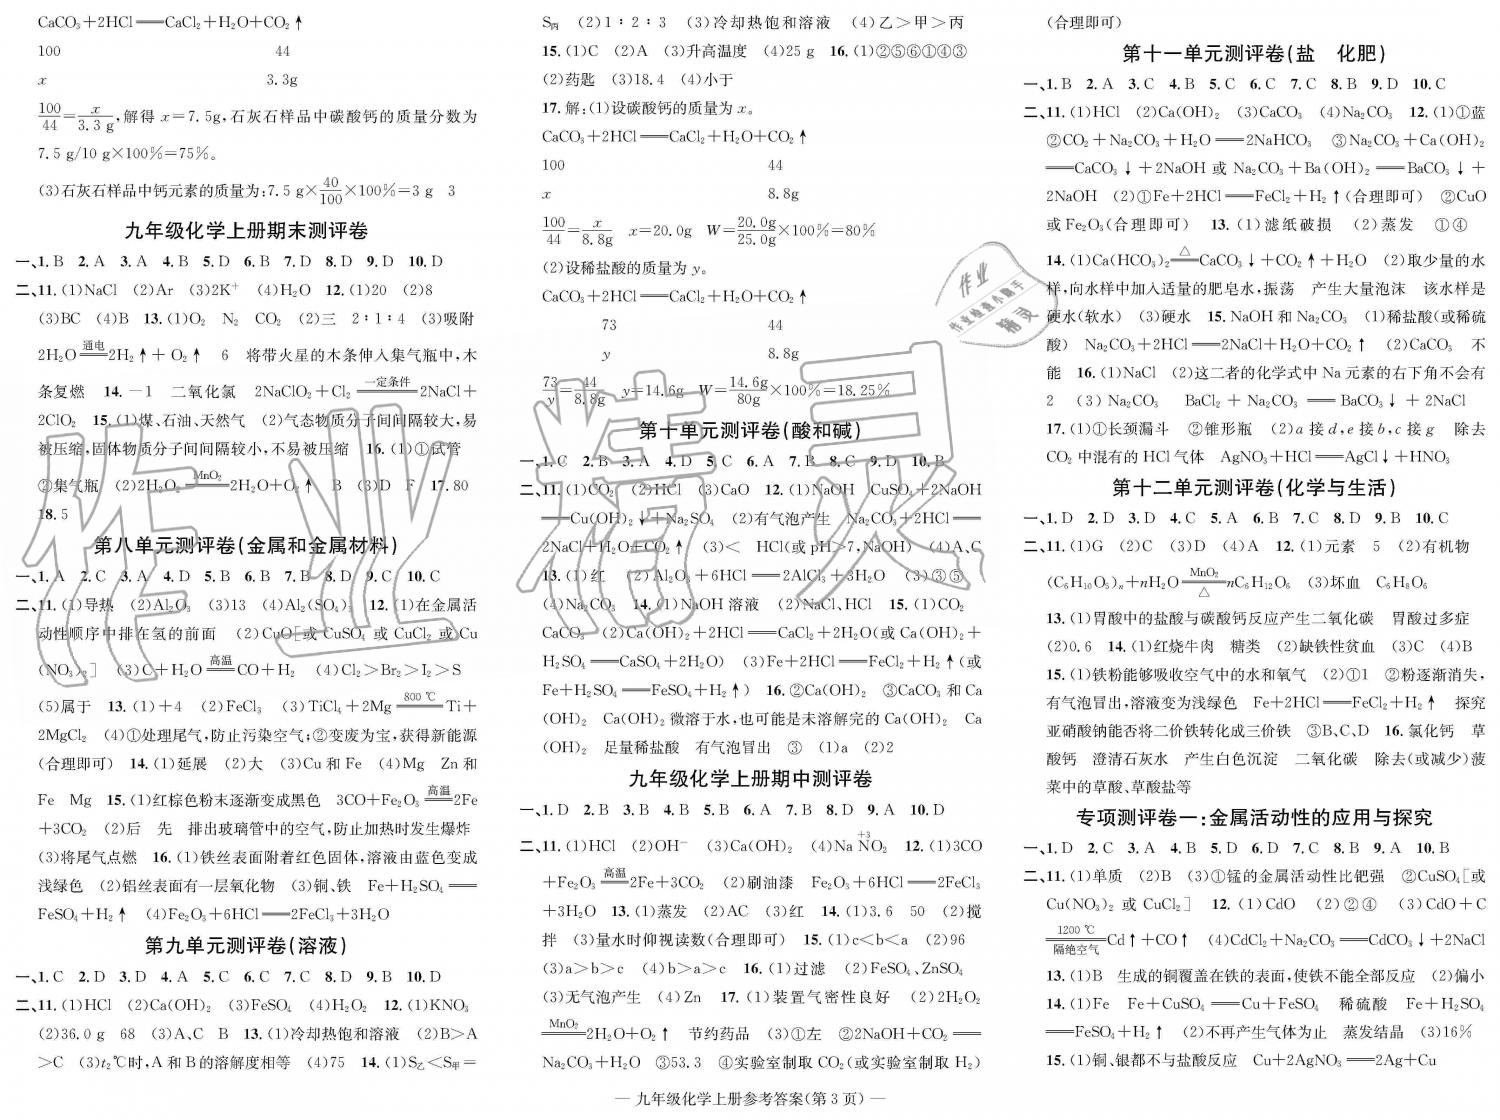 CaCO₃+2HCl══CaCl₂+H₂O+CO₂↑
100 44
x 3.3g
100/44=x/3.3 g,解得 x=7.5g,石灰石样品中碳酸钙的质量分数为
7.5 g/10 g×100%=75%。
(3)石灰石样品中钙元素的质量为:7.5 g×40/100×100%=3 g 3
九年级化学上册期末测评卷
一、1.B 2.A 3.A 4.B 5.D 6.B 7.D 8.D 9.D 10.D
二、11.(1)NaCl (2)Ar (3)2K⁺ (4)H₂O 12.(1)20 (2)8
(3)BC (4)B 13.(1)O₂ N₂ CO₂ (2)三 2∶1∶4 (3)吸附
2H₂O═通电═2H₂↑+O₂↑ 6 将带火星的木条伸入集气瓶中,木
条复燃 14.-1 二氧化氯 2NaClO₂+Cl₂═一定条件═2NaCl+
2ClO₂ 15.(1)煤、石油、天然气 (2)气态物质分子间间隔较大,易
被压缩,固体物质分子间间隔较小,不易被压缩 16.(1)①试管
②集气瓶 (2)2H₂O₂═MnO₂═2H₂O+O₂↑ B (3)D F 17.80
18.5
第八单元测评卷(金属和金属材料)
一、1.A 2.C 3.A 4.D 5.B 6.B 7.B 8.D 9.C 10.C
二、11.(1)导热 (2)Al₂O₃ (3)13 (4)Al₂(SO₄)₃ 12.(1)在金属活
动性顺序中排在氢的前面 (2)CuO[或 CuSO₄ 或 CuCl₂ 或 Cu
(NO₃)₂] (3)C+H₂O═高温═CO+H₂ (4)Cl₂>Br₂>I₂>S
(5)属于 13.(1)+4 (2)FeCl₃ (3)TiCl₄+2Mg═800 ℃═Ti+
2MgCl₂ (4)①处理尾气,防止污染空气;②变废为宝,获得新能源
(合理即可) 14.(1)延展 (2)大 (3)Cu 和 Fe (4)Mg Zn 和
Fe Mg 15.(1)红棕色粉末逐渐变成黑色 3CO+Fe₂O₃═高温═2Fe
+3CO₂ (2)后 先 排出玻璃管中的空气,防止加热时发生爆炸
(3)将尾气点燃 16.(1)铁丝表面附着红色固体,溶液由蓝色变成
浅绿色 (2)铝丝表面有一层氧化物 (3)铜、铁 Fe+H₂SO₄══
FeSO₄+H₂↑ (4)Fe₂O₃+6HCl══2FeCl₃+3H₂O
第九单元测评卷(溶液)
一、1.C 2.D 3.D 4.A 5.C 6.C 7.C 8.D 9.B 10.D
二、11.(1)HCl (2)Ca(OH)₂ (3)FeSO₄ (4)H₂O₂ 12.(1)KNO₃
(2)36.0 g 68 (3)A、C B 13.(1)冷却热饱和溶液 (2)B>A
>C (3)t₂℃时,A 和 B 的溶解度相等 (4)75 14.(1)S乙<S甲=
S丙 (2)1∶2∶3 (3)冷却热饱和溶液 (4)乙>甲>丙
15.(1)C (2)A (3)升高温度 (4)25 g 16.(1)②⑤⑥①④③
(2)药匙 (3)18.4 (4)小于
17.解:(1)设碳酸钙的质量为 x。
CaCO₃+2HCl══CaCl₂+H₂O+CO₂↑
100 44
x 8.8g
100/44=x/8.8g x=20.0g W=20.0g/25.0g×100%=80%
(2)设稀盐酸的质量为 y。
CaCO₃+2HCl══CaCl₂+H₂O+CO₂↑
73 44
y 8.8g
73/y=44/8.8g y=14.6g W=14.6g/80g×100%=18.25%
第十单元测评卷(酸和碱)
一、1.C 2.B 3.A 4.D 5.C 6.A 7.B 8.C 9.D 10.B
二、11.(1)CO₂ (2)HCl (3)CaO 12.(1)NaOH CuSO₄+2NaOH
══Cu(OH)₂↓+Na₂SO₄ (2)有气泡产生 Na₂CO₃+2HCl══
2NaCl+H₂O+CO₂↑ (3)< HCl(或 pH>7,NaOH) (4)A、C
13.(1)红 (2)Al₂O₃+6HCl══2AlCl₃+3H₂O (3)③⑤
(4)Na₂CO₃ 14.(1)NaOH 溶液 (2)NaCl、HCl 15.(1)CO₂
CaCO₃ (2)Ca(OH)₂+2HCl══CaCl₂+2H₂O(或 Ca(OH)₂+
H₂SO₄══CaSO₄+2H₂O) (3)Fe+2HCl══FeCl₂+H₂↑(或
Fe+H₂SO₄══FeSO₄+H₂↑) 16.②Ca(OH)₂ ③CaCO₃ 和 Ca
(OH)₂ Ca(OH)₂ 微溶于水,也可能是未溶解完的 Ca(OH)₂ Ca
(OH)₂ 足量稀盐酸 有气泡冒出 ③ (1)a (2)2
九年级化学上册期中测评卷
一、1.D 2.B 3.B 4.B 5.B 6.A 7.B 8.D 9.A 10.D
二、11.(1)HCl (2)OH⁻ (3)Ca(OH)₂ (4)Na N(+3)O₂ 12.(1)3CO
+Fe₂O₃═高温═2Fe+3CO₂ (2)刷油漆 Fe₂O₃+6HCl══2FeCl₃
+3H₂O 13.(1)蒸发 (2)AC (3)红 14.(1)3.6 50 (2)搅
拌 (3)量水时仰视读数(合理即可) 15.(1)c<b<a (2)96
(3)a>b>c (4)b>a>c 16.(1)过滤 (2)FeSO₄、ZnSO₄
(3)无气泡产生 (4)Zn 17.(1)装置气密性良好 (2)2H₂O₂
═MnO₂═2H₂O+O₂↑ 节约药品 (3)①左 ②2NaOH+CO₂══
Na₂CO₃+H₂O ③53.3 ④实验室制取 CO₂(或实验室制取 H₂)
(合理即可)
第十一单元测评卷(盐 化肥)
一、1.B 2.A 3.C 4.B 5.C 6.C 7.C 8.B 9.D 10.C
二、11.(1)HCl (2)Ca(OH)₂ (3)CaCO₃ (4)Na₂CO₃ 12.(1)①蓝
②CO₂+Na₂CO₃+H₂O══2NaHCO₃ ③Na₂CO₃+Ca(OH)₂
══CaCO₃↓+2NaOH 或 Na₂CO₃+Ba(OH)₂══BaCO₃↓+
2NaOH (2)①Fe+2HCl══FeCl₂+H₂↑(合理即可) ②CuO
或 Fe₂O₃(合理即可) 13.(1)滤纸破损 (2)蒸发 ①④
14.(1)Ca(HCO₃)₂═△═CaCO₃↓+CO₂↑+H₂O (2)取少量的水
样,向水样中加入适量的肥皂水,振荡 产生大量泡沫 该水样是
硬水(软水) (3)硬水 15.NaOH 和 Na₂CO₃ (1)稀盐酸(或稀硫
酸) Na₂CO₃+2HCl══2NaCl+H₂O+CO₂↑ (2)CaCO₃ 不
能 16.(1)NaCl (2)这二者的化学式中 Na 元素的右下角不会有
2 (3)Na₂CO₃ BaCl₂+Na₂CO₃══BaCO₃↓+2NaCl
17.(1)①长颈漏斗 ②锥形瓶 (2)a 接 d,e 接 b,c 接 g 除去
CO₂ 中混有的 HCl 气体 AgNO₃+HCl══AgCl↓+HNO₃
第十二单元测评卷(化学与生活)
一、1.D 2.D 3.D 4.C 5.A 6.B 7.C 8.D 9.B 10.C
二、11.(1)G (2)C (3)D (4)A 12.(1)元素 5 (2)有机物
(C₆H₁₀O₅)ₙ+nH₂O═MnO₂/△═nC₆H₁₂O₆ (3)坏血 C₆H₈O₆
13.(1)胃酸中的盐酸与碳酸钙反应产生二氧化碳 胃酸过多症
(2)0.6 14.(1)红烧牛肉 糖类 (2)缺铁性贫血 (3)C (4)B
15.(1)铁粉能够吸收空气中的水和氧气 (2)①1 ②粉逐渐消失,
有气泡冒出,溶液变为浅绿色 Fe+2HCl══FeCl₂+H₂↑ 探究
亚硝酸钠能否将二价铁转化成三价铁 ③B、C、D 16.氯化钙 草
酸钙 澄清石灰水 产生白色沉淀 二氧化碳 除去(或减少)菠
菜中的草酸、草酸盐等
专项测评卷一:金属活动性的应用与探究
一、1.D 2.C 3.A 4.B 5.D 6.D 7.C 8.B 9.A 10.B
二、11.(1)单质 (2)B (3)①锰的金属活动性比钯强 ②CuSO₄[或
Cu(NO₃)₂ 或 CuCl₂] 12.(1)CdO (2)②④ (3)CdO+C
═1200 ℃/隔绝空气═Cd↑+CO↑ (4)CdCl₂+Na₂CO₃══CdCO₃↓+2NaCl
13.(1)B 生成的铜覆盖在铁的表面,使铁不能全部反应 (2)偏小
14.(1)Fe Fe+CuSO₄══Cu+FeSO₄ 稀硫酸 Fe+H₂SO₄
══FeSO₄+H₂↑ (2)不再产生气体为止 蒸发结晶 (3)16%
15.(1)铜、银都不与盐酸反应 Cu+2AgNO₃══2Ag+Cu
— 九年级化学上册参考答案(第 3 页) —
作业精灵
作业
作业检查小助手
精灵